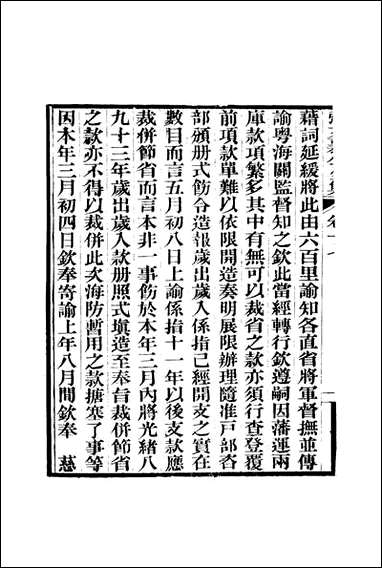 藉詞延緩將此由六百里諭知各直省將軍督撫並傳
諭粵海關監督知之欽此當經轉行欽遵嗣因藩運兩
庫款項繁多其中有無可以裁省之款亦須行查登覆
前項款單難以依限開造奏明展限辦理隨准戸部咨
部頒册式飭令造報歲出歲入係指已經開支之實在
數目而言五月初八日上諭係指十一年以後支款應
裁併節省而言本非一事飭於本年三月內將光緒八
九十三年歲出歲入款册照式塡造至奉旨裁併節省
之款亦不得以裁併此次海防暫用之款搪塞了事等
因本年三月初四日欽奉寄諭上年八月間欽奉 慈